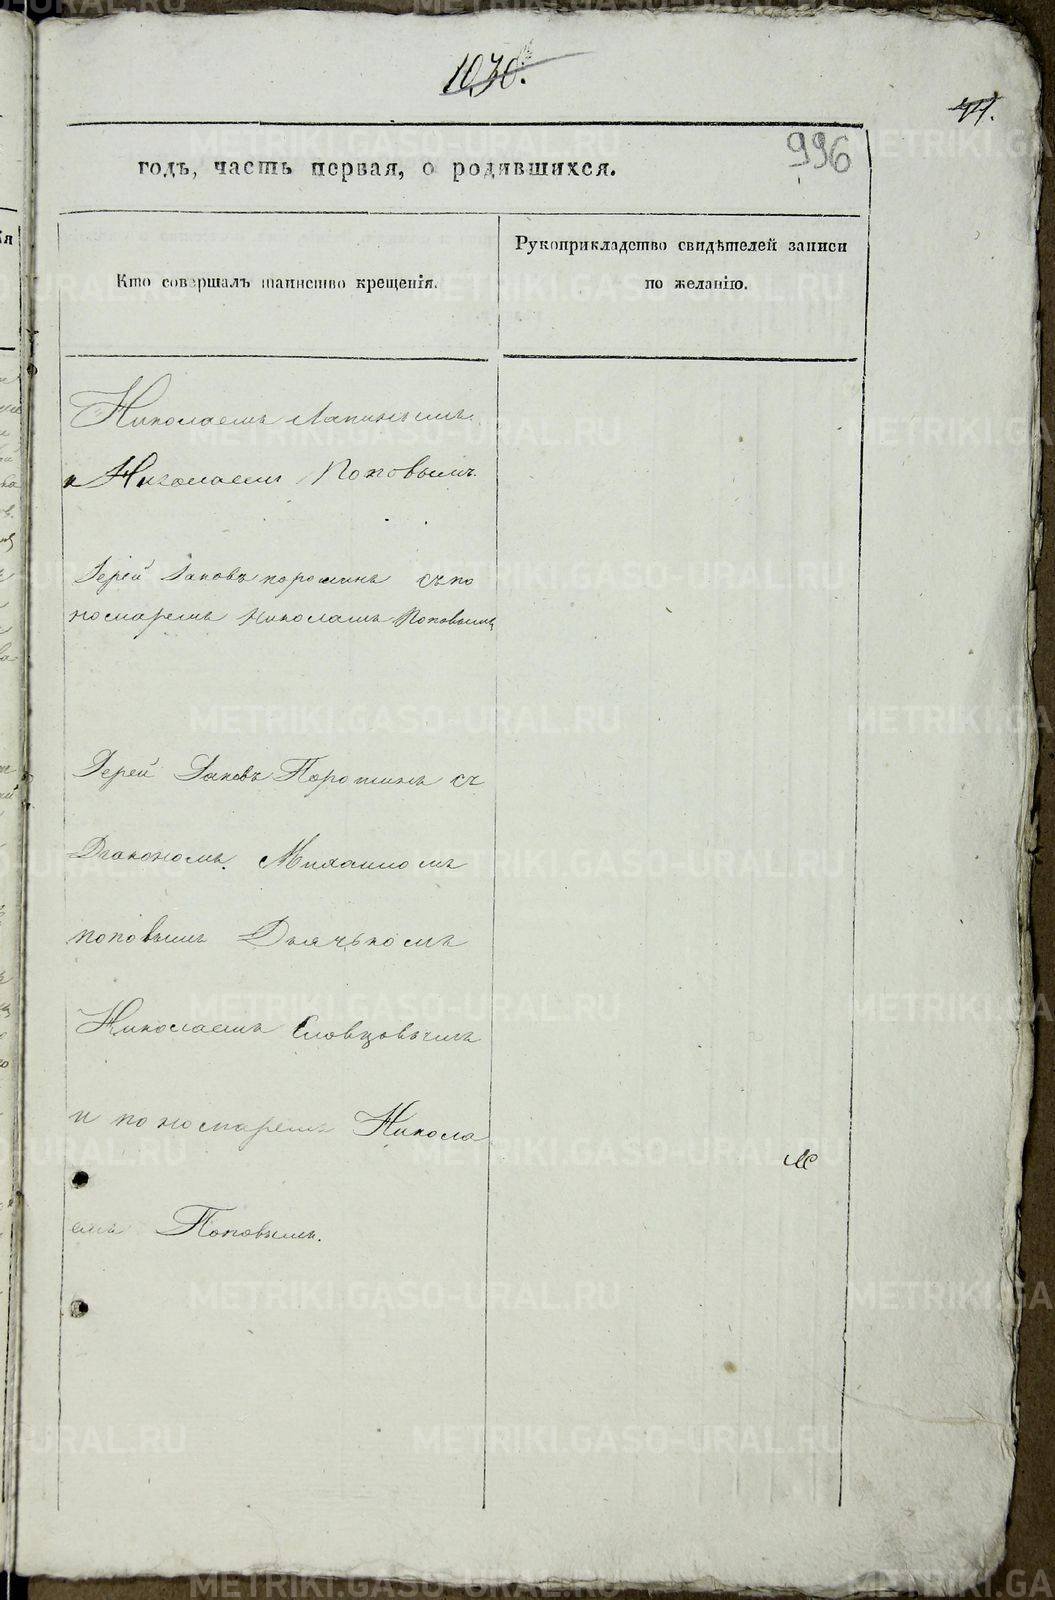 1030.
44.
996
годъ, часть первая, о родившихся.
Кто совершалъ таинство крещенія.
Рукоприкладство свидѣтелей записи
по желанію.
Николаемъ Лапинымъ
и Николаемъ Поповымъ
Іерей Іаковъ порошинъ съ по
номаремъ Николаемъ Поповымъ
Іерей Іаковъ Порошинъ съ
Діакономъ Михаиломъ
поповымъ Дьячькомъ
Николаемъ Словцовымъ
и пономаремъ Никола
емъ Поповымъ.
METRIKI.GASO-URAL.RU